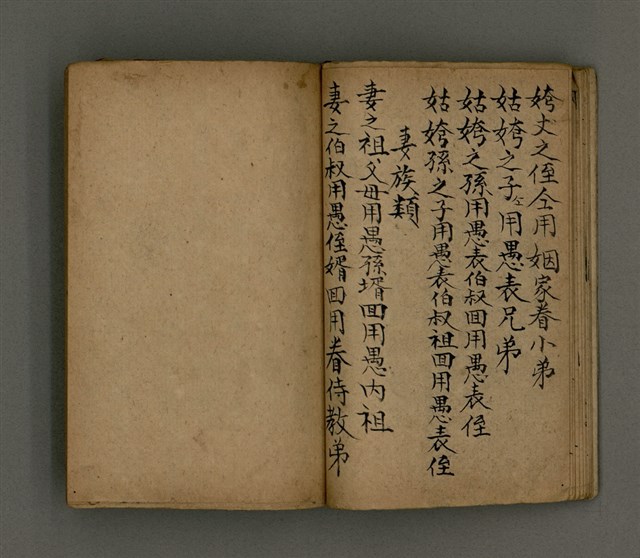 姱丈之侄仝用姻家眷小弟
姑姱之子仝用愚表兄弟
姑姱之孫用愚表伯叔回用愚表侄
姑姱孫之子用愚表伯叔祖回用愚表侄
妻族類
妻之祖父母用愚孫壻回用愚内祖
妻之伯叔用愚侄婿回用眷侍教弟